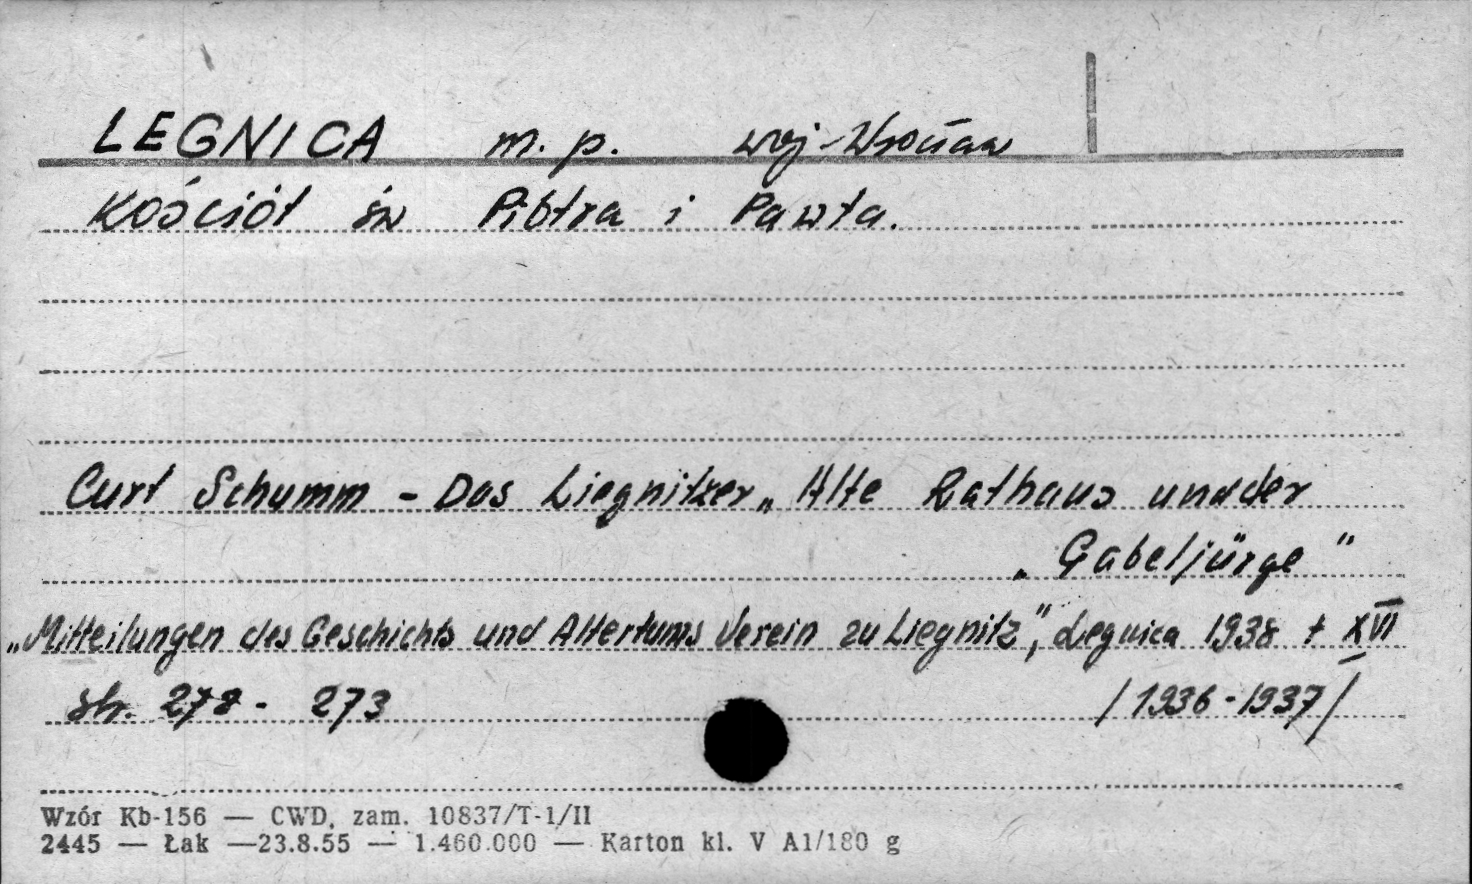 LEGNICA m. p. woj. Wrocław
Kościół św Piotra i Pawła.
Curt Schumm - Das Liegnitzer „Alte Rathaus und der
„Gabeljürge"
„Mitteilungen des Geschichts und Altertums Verein zu Liegnitz", Legnica 1938 t XVI
str. 278 - 273 /1936-1937/
Wzór Kb-156 — CWD, zam. 10837/T-1/II
2445 — Łak —23.8.55 — 1.460.000 — Karton kl. V A1/180 g